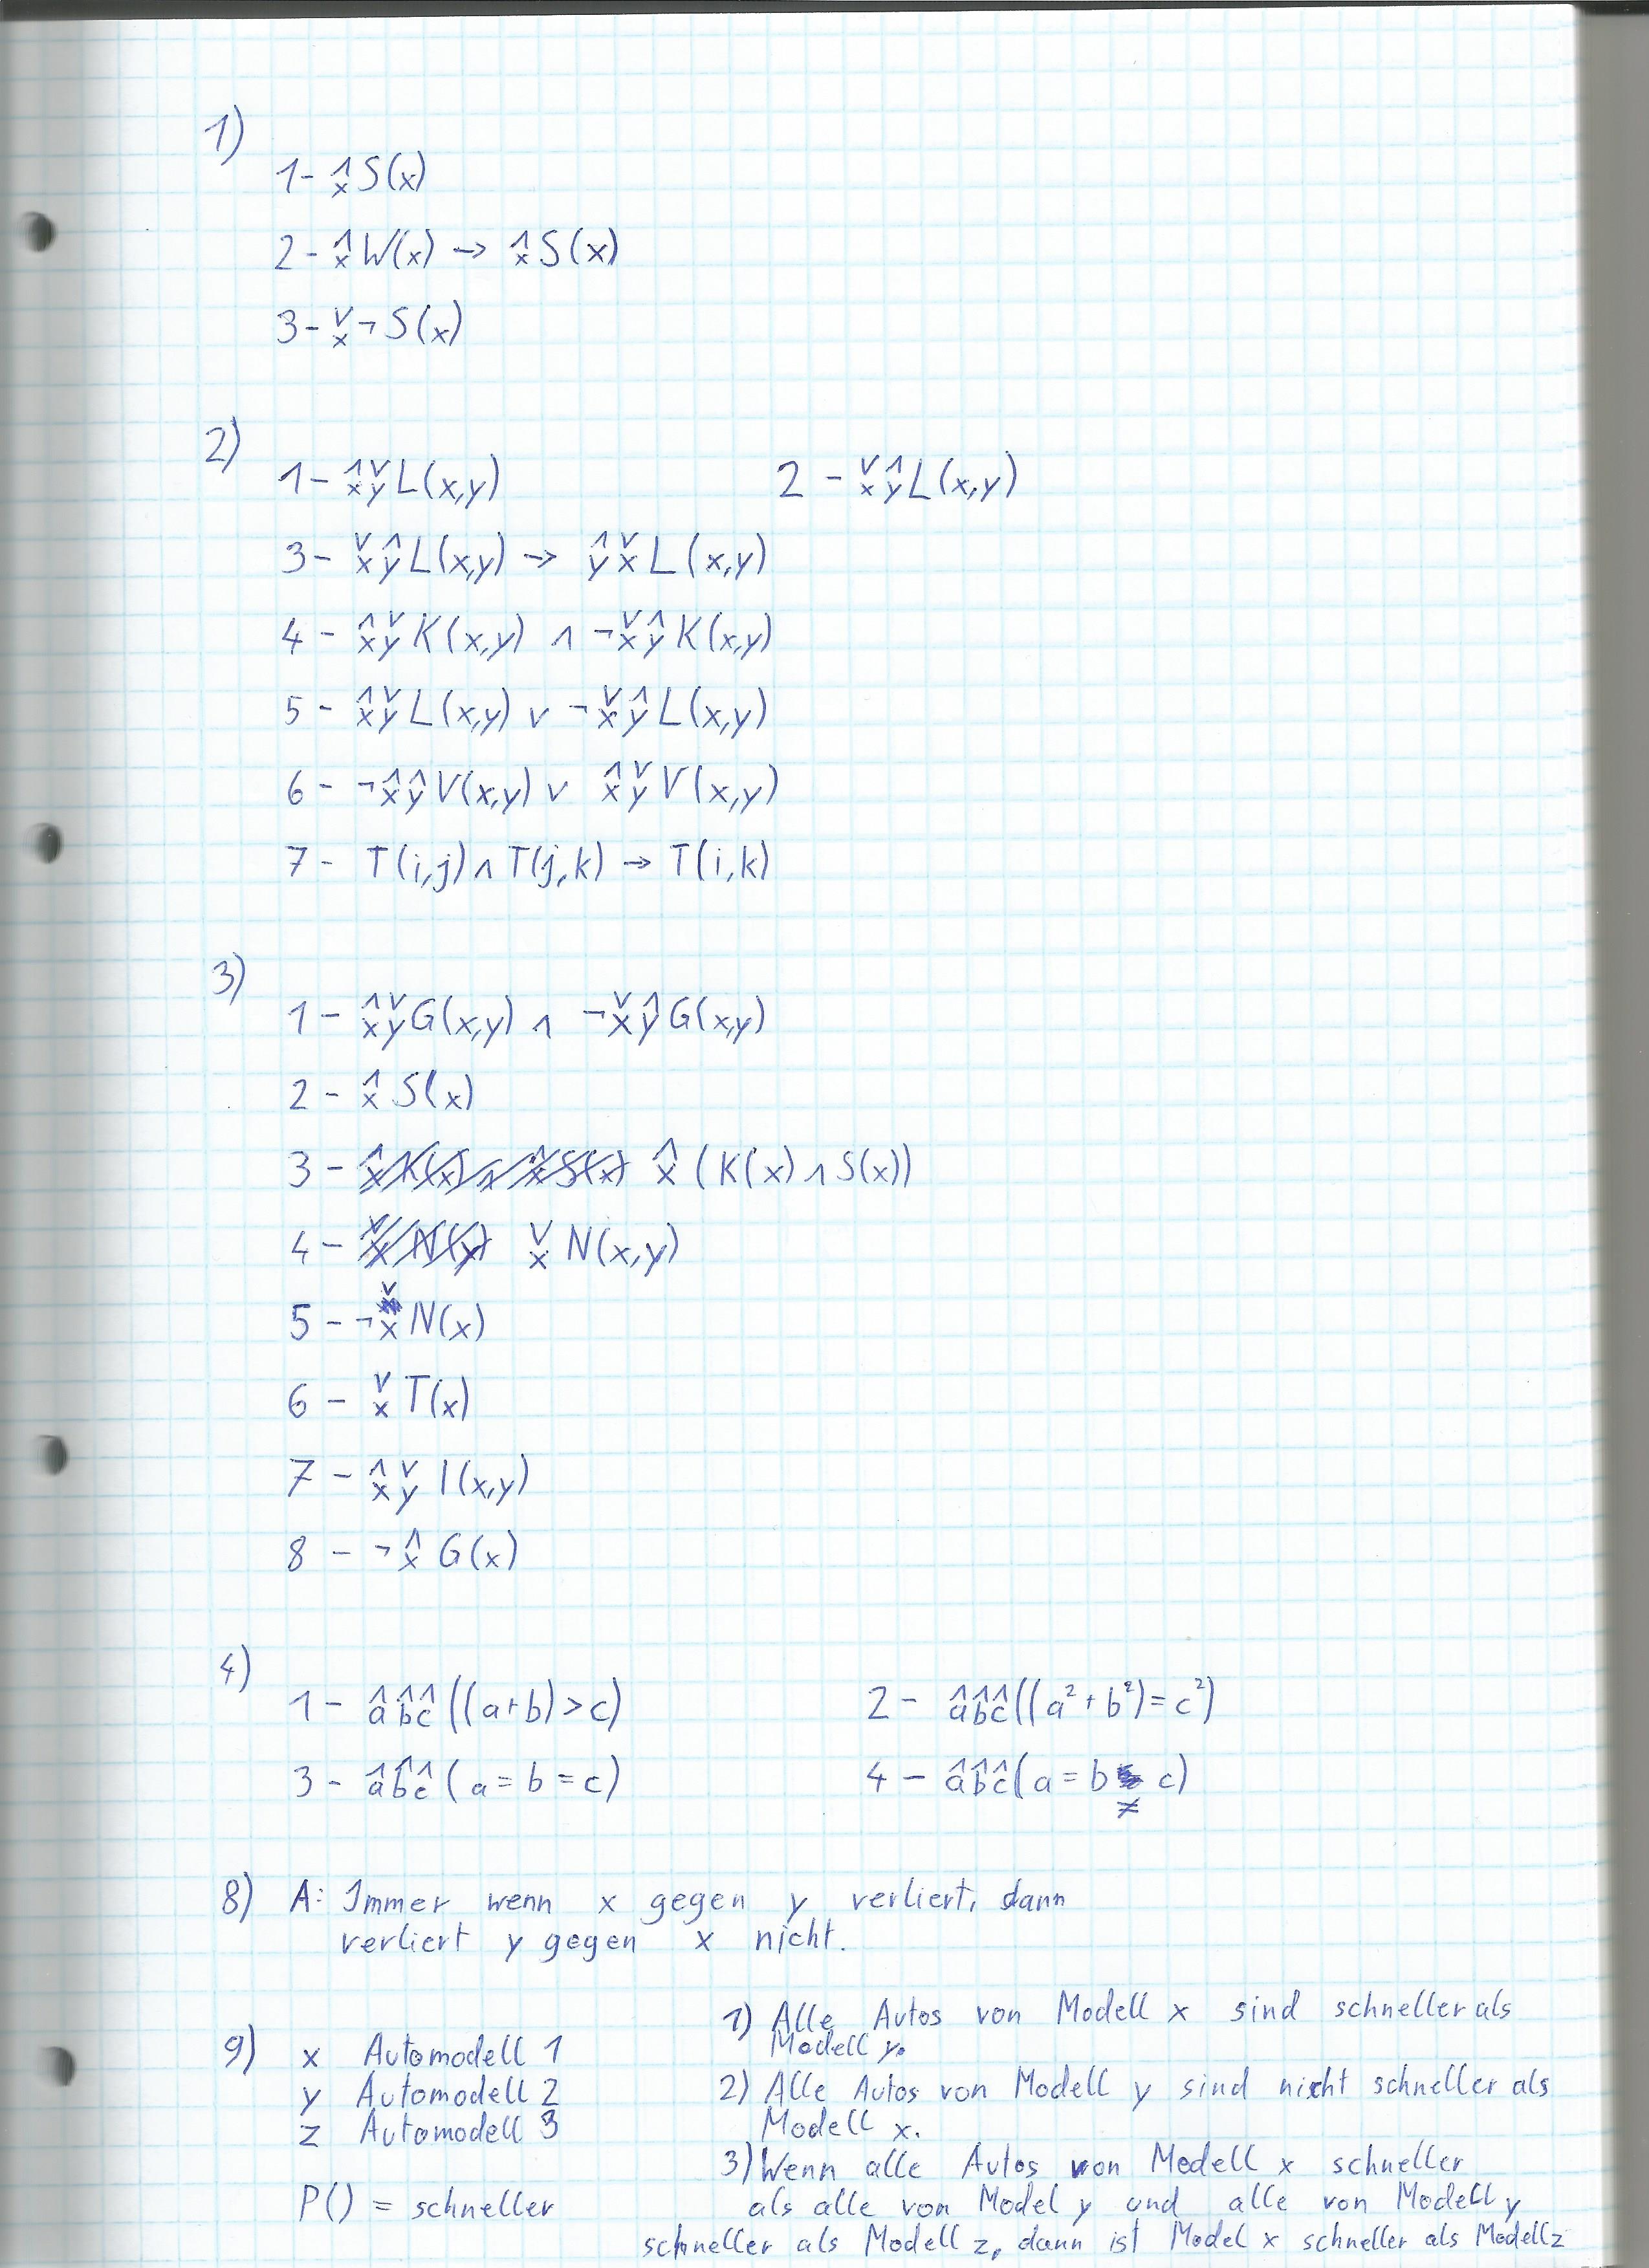 1)
1- ∧x S(x)
2- ∧x W(x) → ∧x S(x)
3- ∨x ¬ S(x)
2)
1- ∧x ∨y L(x,y) 2 - ∨x ∧y L(x,y)
3- ∨x ∧y L(x,y) → ∧y ∨x L(x,y)
4 - ∧x ∨y K(x,y) ∧ ¬∨x ∧y K(x,y)
5 - ∧x ∨y L(x,y) ∨ ¬∨x ∧y L(x,y)
6 - ¬∧x ∧y V(x,y) ∨ ∧x ∨y V(x,y)
7 - T(i,j) ∧ T(j,k) → T(i,k)
3)
1 - ∧x ∨y G(x,y) ∧ ¬∨x ∧y G(x,y)
2 - ∧x S(x)
3 - ∧x (K(x) ∧ S(x))
4 - ∨x N(x,y)
5 - ¬∨x N(x)
6 - ∨x T(x)
7 - ∧x ∨y I(x,y)
8 - ¬∧x G(x)
4)
1 - ∧a ∧b ∧c ((a+b) > c) 2 - ∧a ∧b ∧c ((a² + b²) = c²)
3 - ∧a ∧b ∧c (a = b = c) 4 - ∧a ∧b ∧c (a = b ≠ c)
8) A: Immer wenn x gegen y verliert, dann
verliert y gegen x nicht.
9) x Automodell 1
y Automodell 2
z Automodell 3
P() = schneller
1) Alle Autos von Modell x sind schneller als
Modell y.
2) Alle Autos von Modell y sind nicht schneller als
Modell x.
3) Wenn alle Autos von Modell x schneller
als alle von Model y und alle von Modell y
schneller als Modell z, dann ist Model x schneller als Modell z